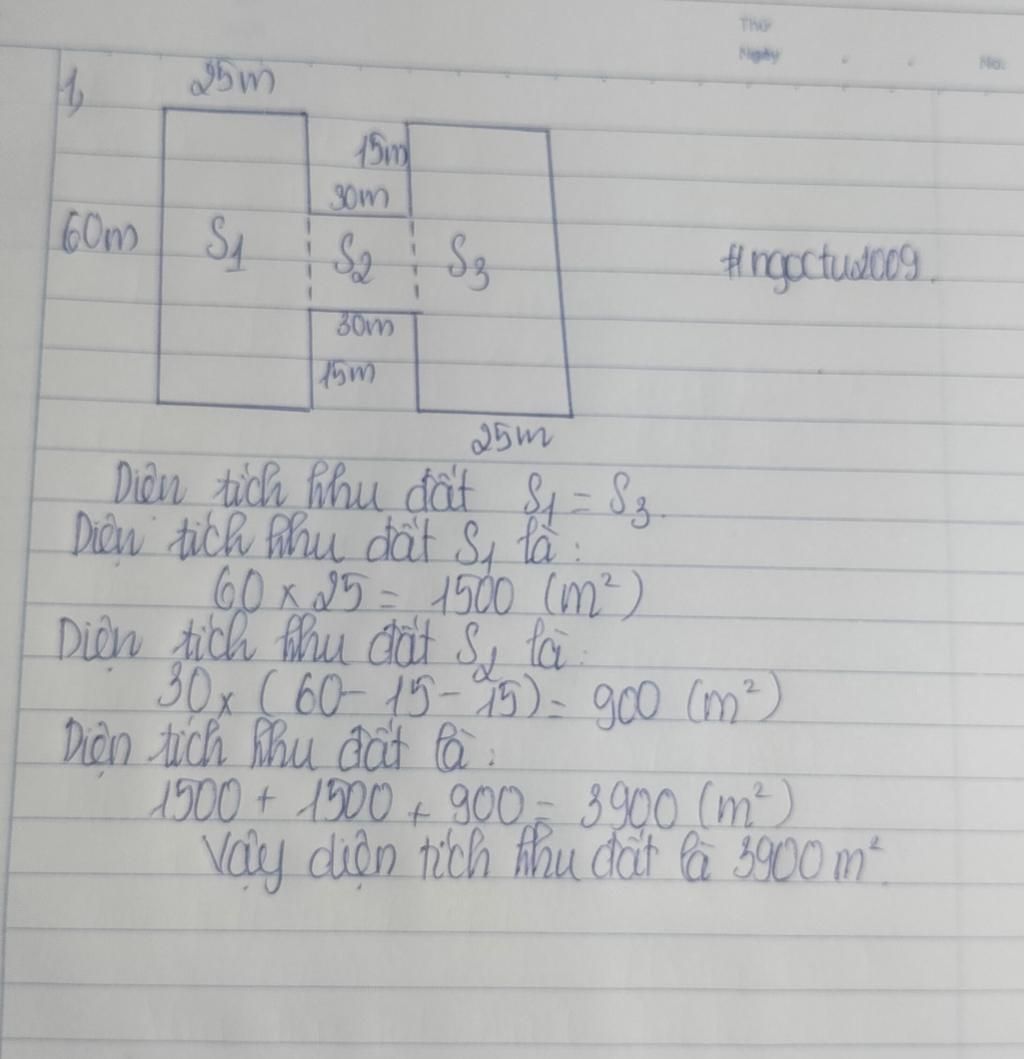 Thứ
Ngày
No.
1,
25m
15m
30m
60m
S1
S2
S3
#ngoctu2009.
30m
15m
25m
Diện tích khu đất S1 = S3.
Diện tích khu đất S1 là:
60 × 25 = 1500 (m²)
Diện tích khu đất S2 là:
30 × (60 - 15 - 15) = 900 (m²)
Diện tích khu đất là:
1500 + 1500 + 900 = 3900 (m²)
Vậy diện tích khu đất là 3900 m².